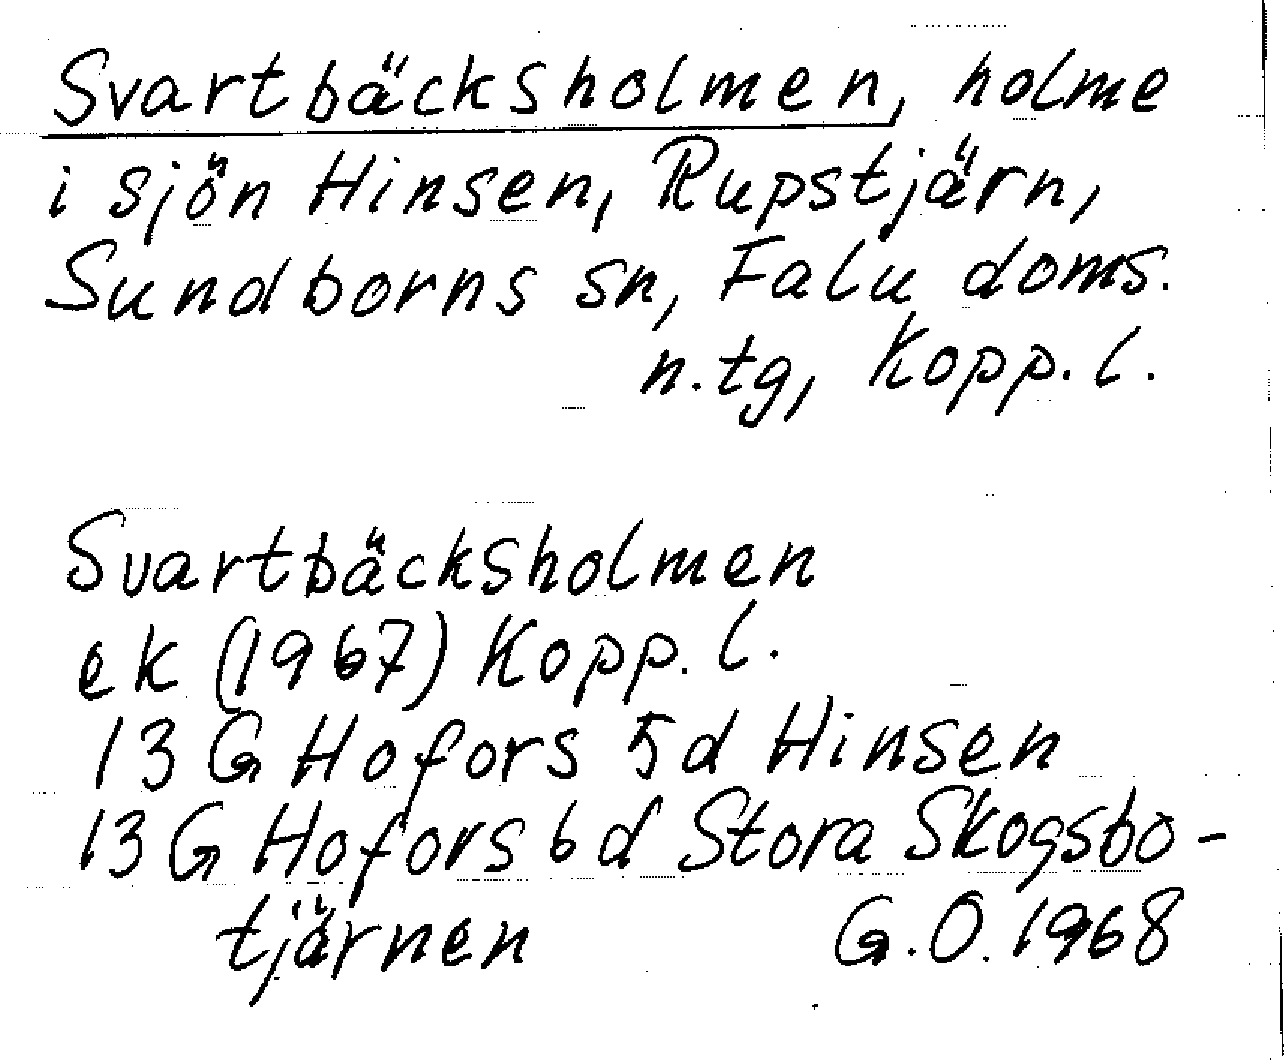 Svartbäcksholmen, holme
i sjön Hinsen, Rupstjärn,
Sundborns sn, Falu doms.
n.tg, Kopp. l.
Svartbäcksholmen
ek (1967) Kopp. l.
13 G Hofors 5 d Hinsen
13 G Hofors 6 d Stora Skogsbo-
tjärnen G.O. 1968